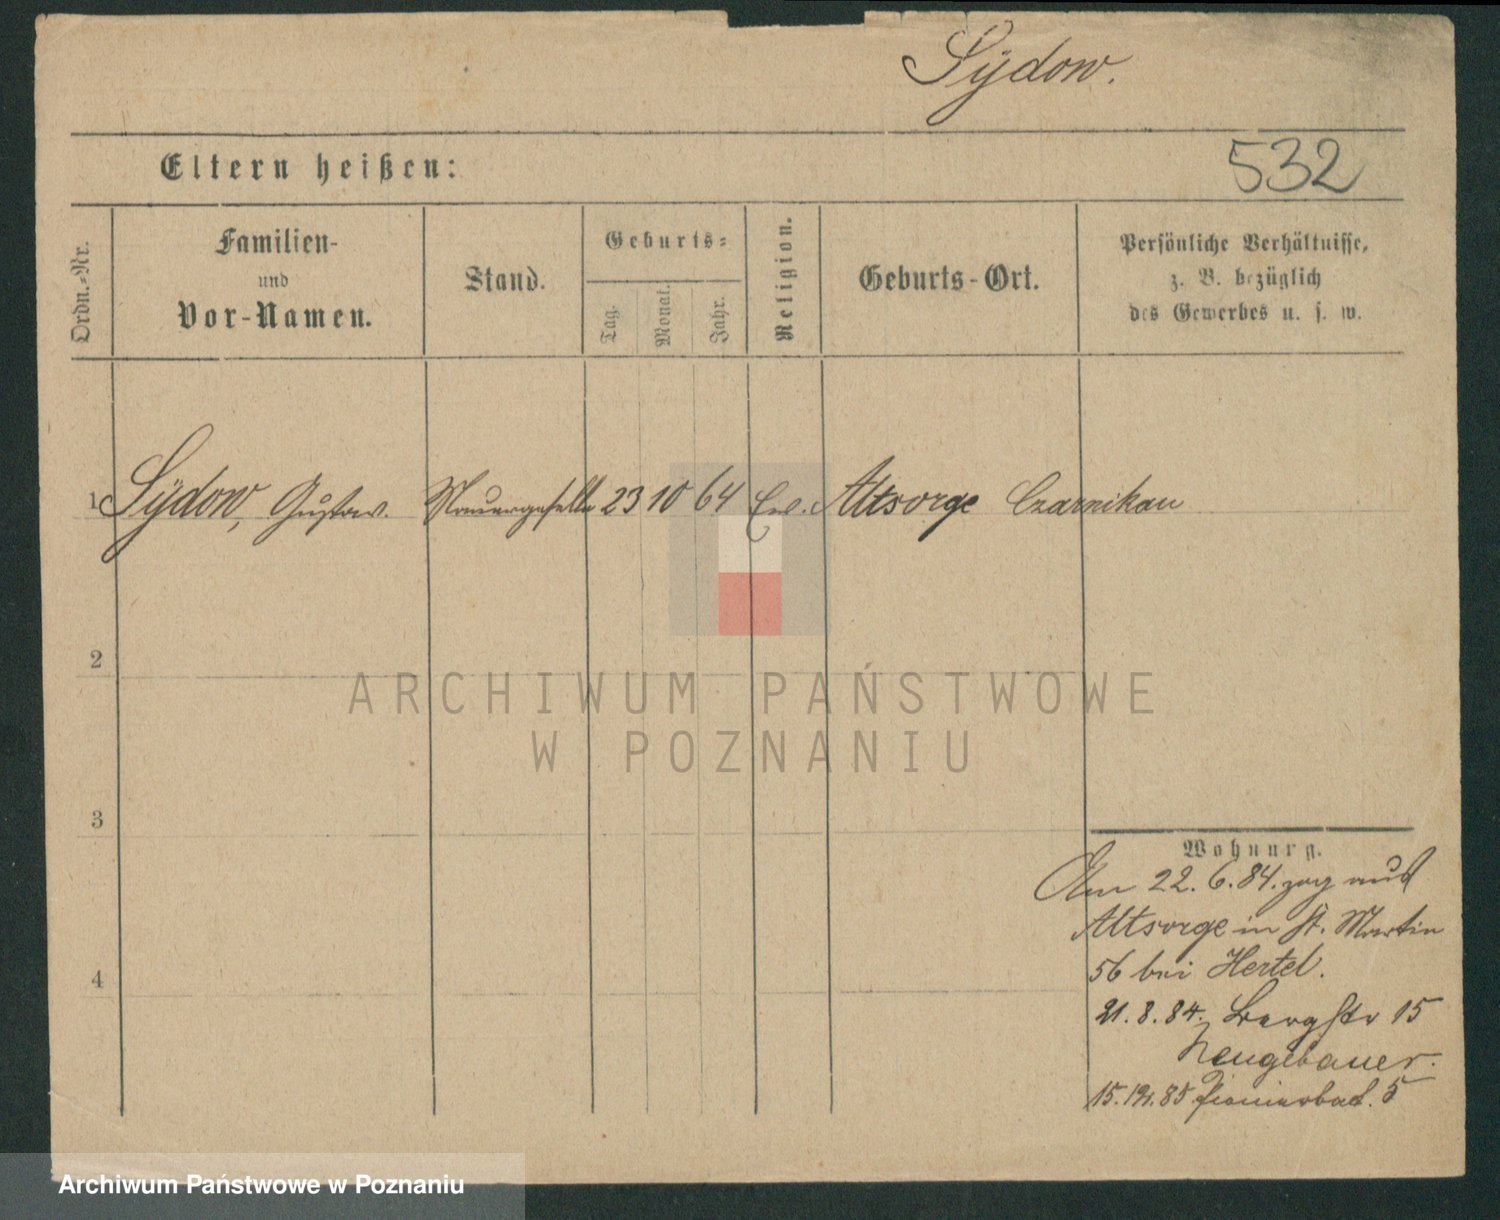 Sÿdow.
Eltern heißen:
532
Ordn.-Nr.
Familien-
und
Vor-Namen.
Stand.
Geburts-
Tag.
Monat.
Jahr.
Religion.
Geburts-Ort.
Persönliche Verhältnisse,
z. B. bezüglich
des Gewerbes u. s. w.
1 Sÿdow, Gustav. Maurergeselle 23 10 64 Ev. Altsorge Czarnikau
2
ARCHIWUM PAŃSTWOWE
W POZNANIU
3
Wohnung.
Am 22. 6. 84. zog aus
Altsorge in St. Martin
56 bei Hertel.
4
21. 8. 84. Bergstr 15
Neugebauer.
85 5
Archiwum Państwowe w Poznaniu